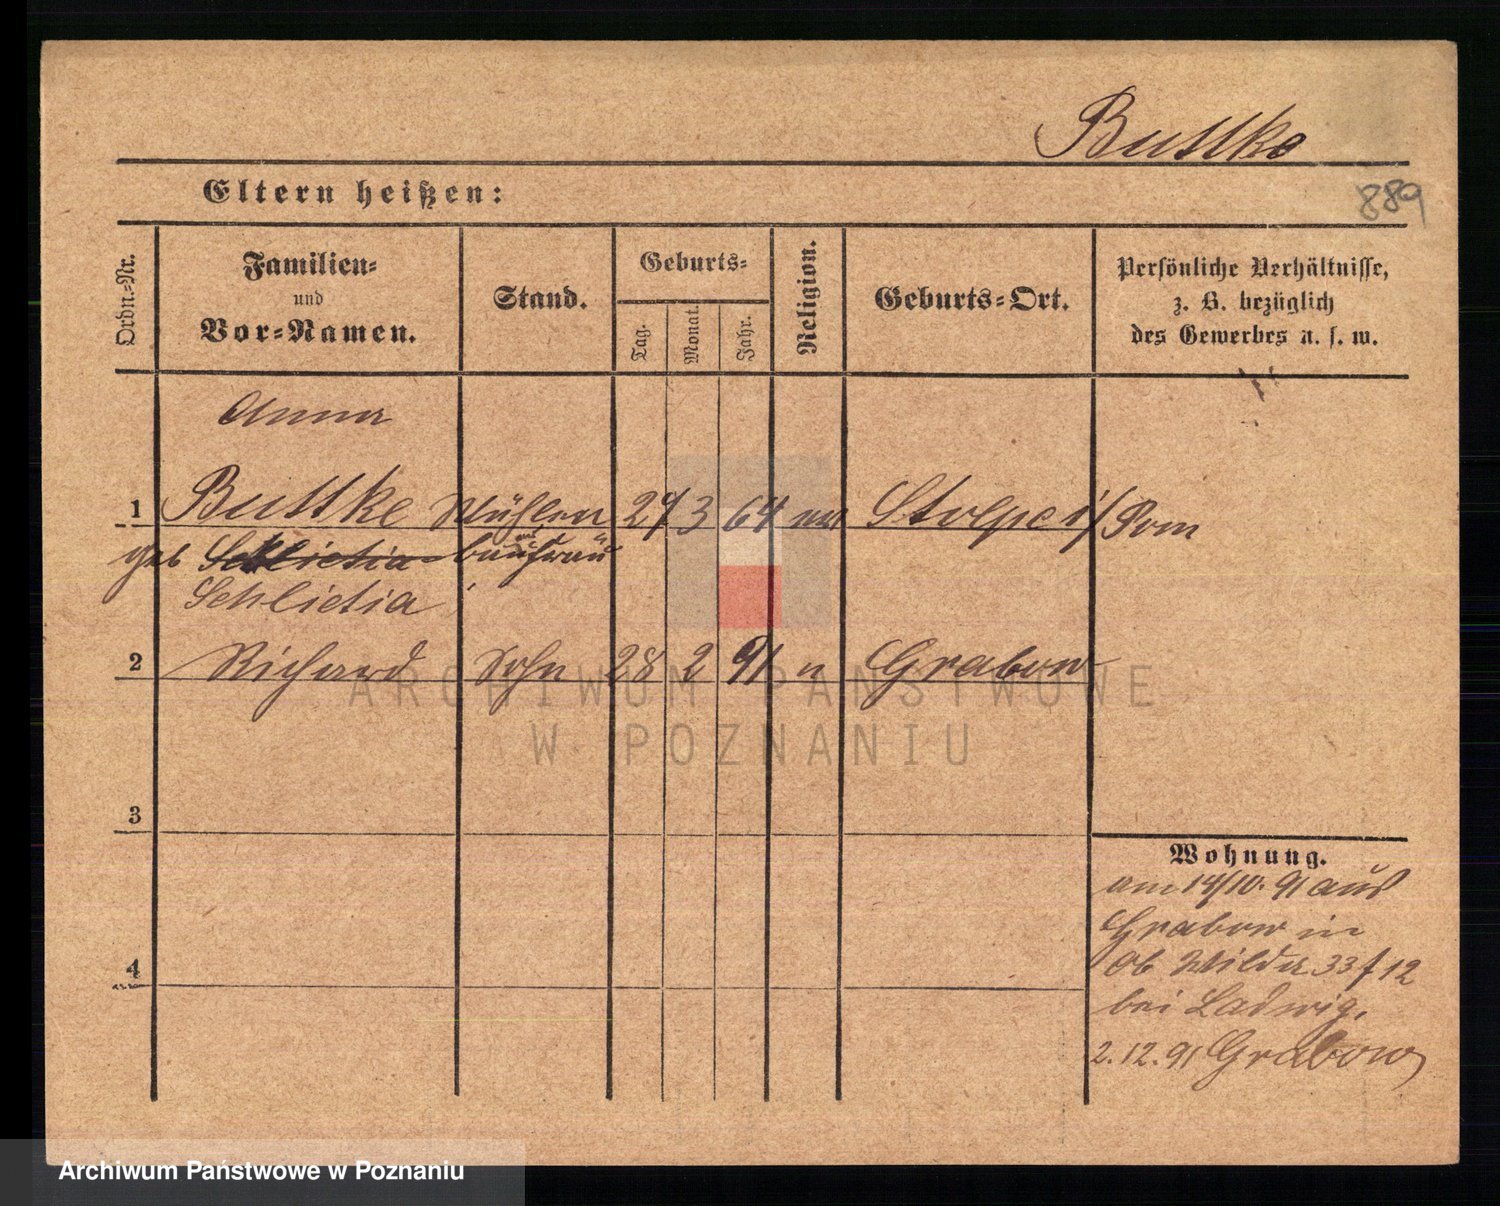 Buttke
Eltern heißen:
889
Ordn.-Nr.
Familien-
und
Vor-Namen.
Stand.
Geburts-
Tag.
Monat.
Jahr.
Religion.
Geburts-Ort.
Persönliche Verhältnisse,
z. B. bezüglich
des Gewerbes u. s. w.
Anna
1 Buttke Mühlen 27 3 64 Stolpe i/Pom
geb Schlietia baufrau
Schlietia
2 Richard Sohn 28 2 91 u Grabow
ARCHIWUM PAŃSTWOWE
W POZNANIU
3
Wohnung.
am 14/10. 91 aus
Grabow in
Ob Wilda 33 f 12
bei Ladwig.
4
2.12.91 Grabow
Archiwum Państwowe w Poznaniu